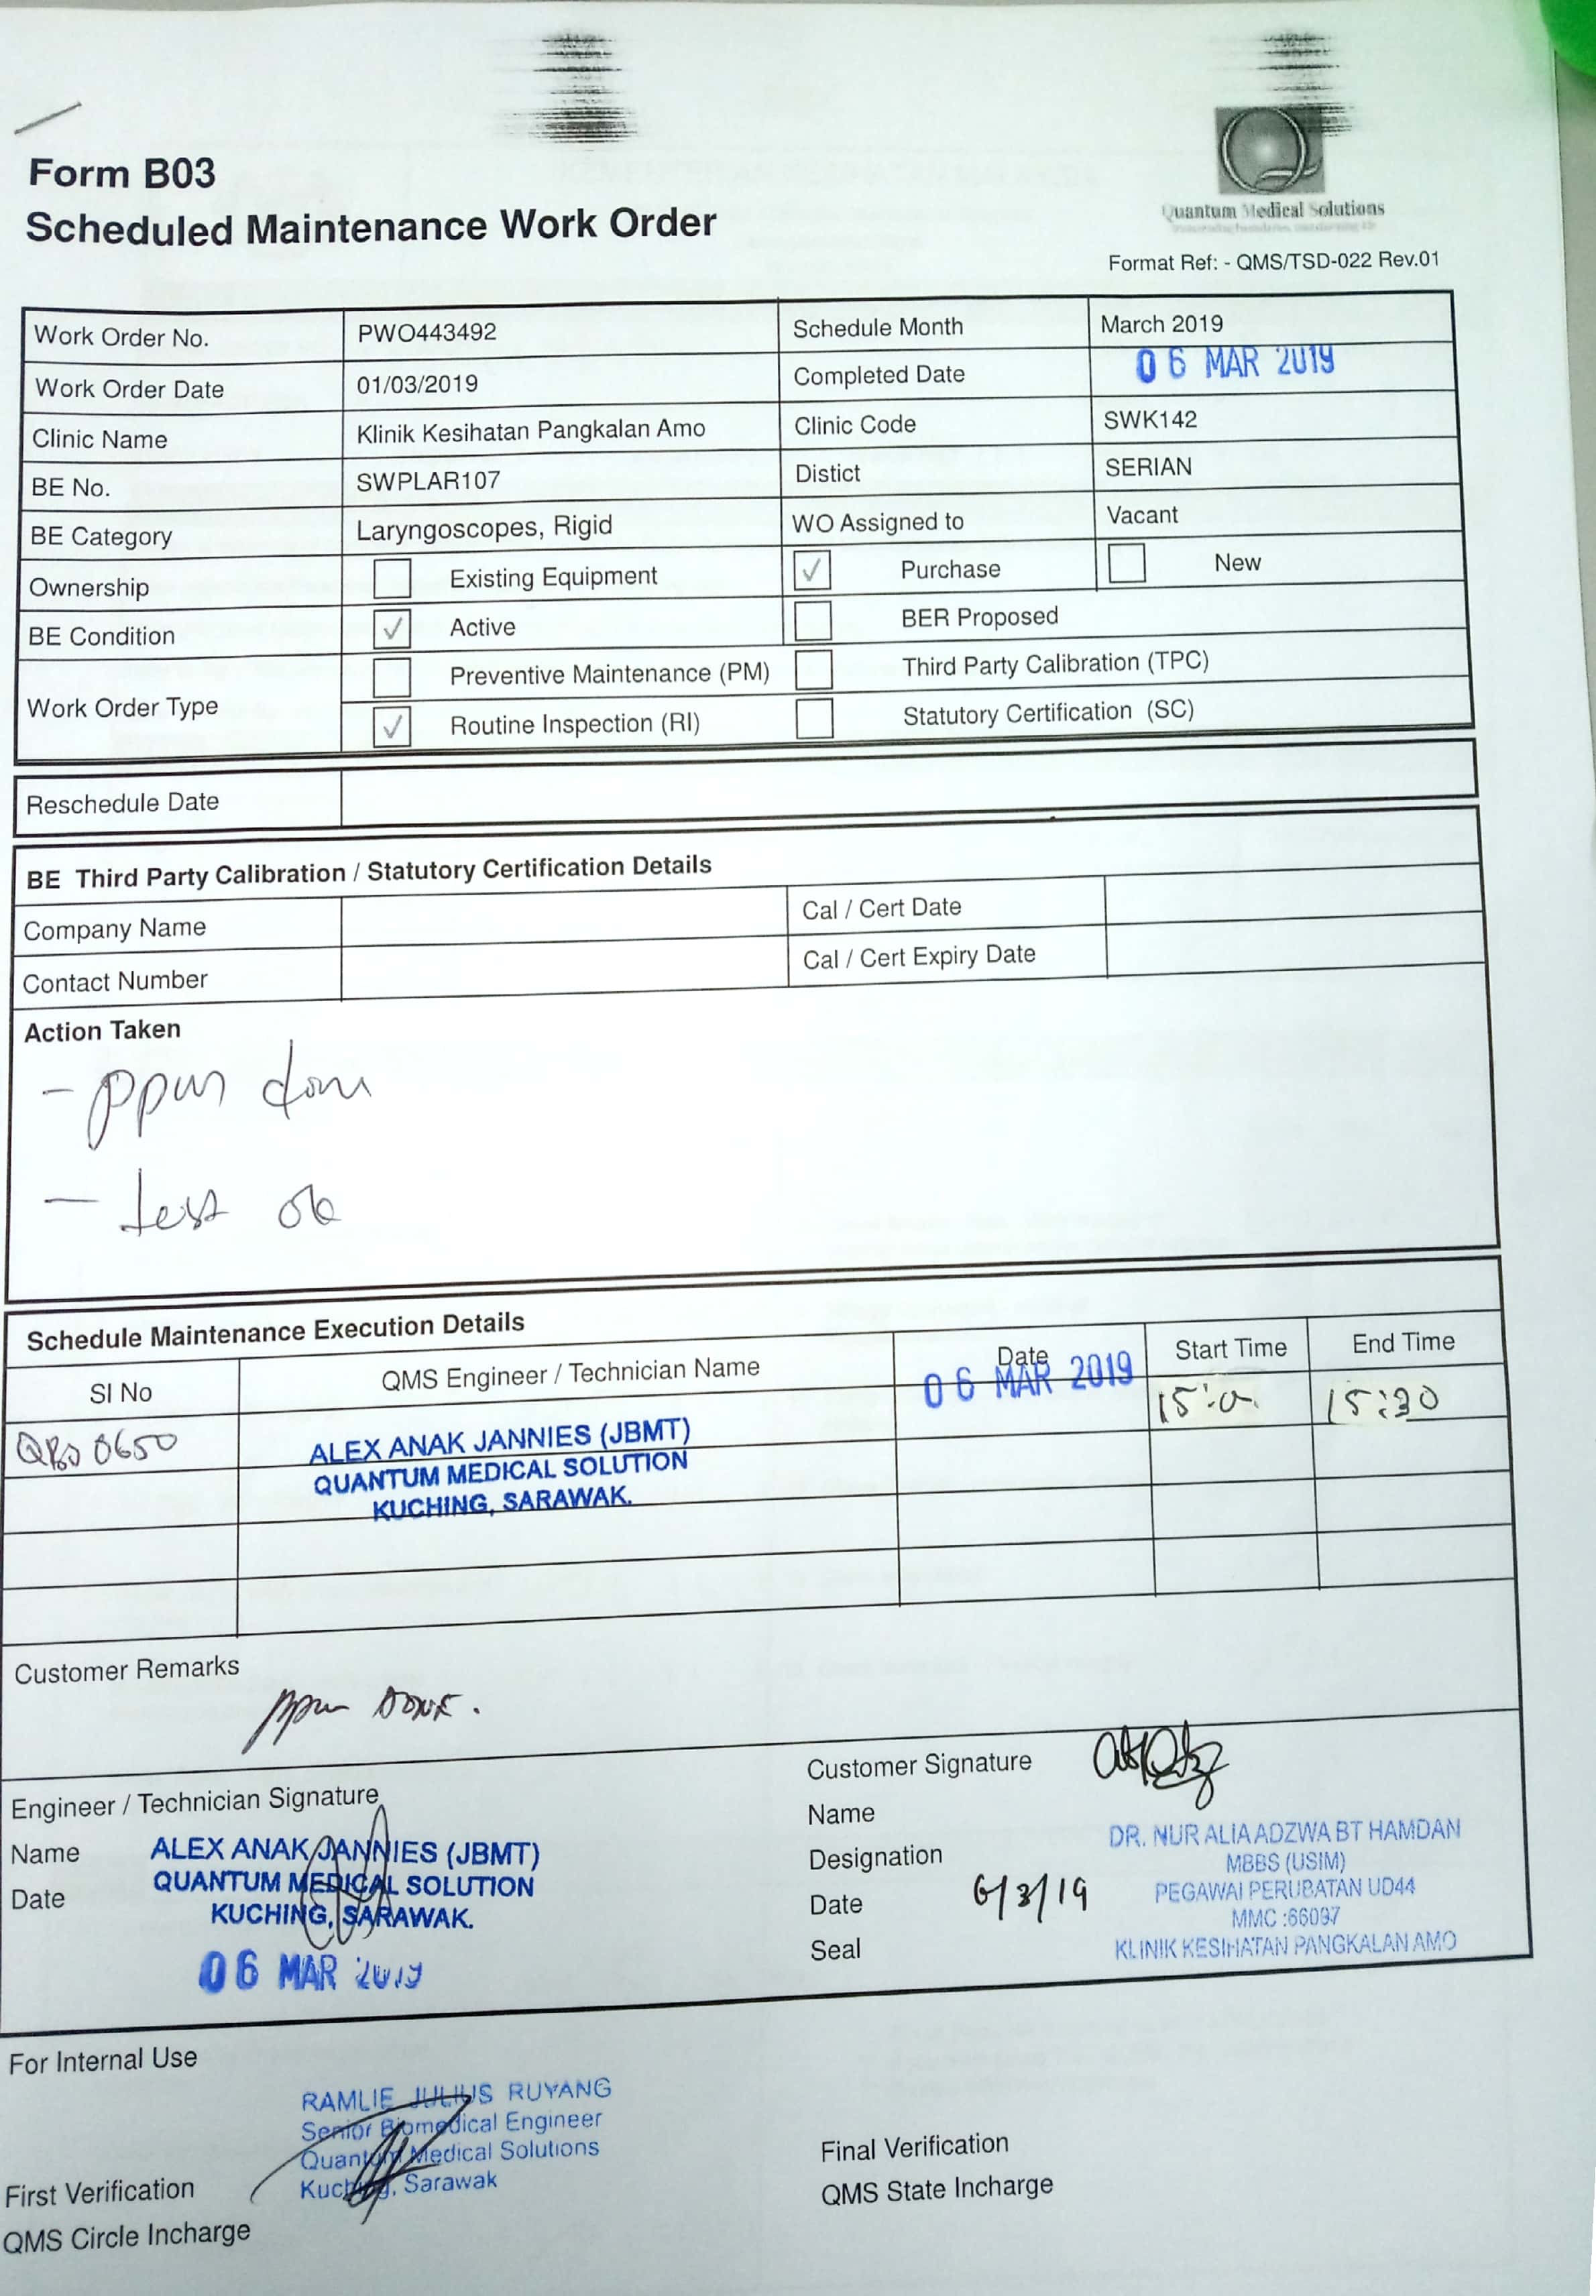 Form B03
Scheduled Maintenance Work Order
Quantum Medical Solutions
Format Ref: - QMS/TSD-022 Rev.01
Work Order No. PWO443492 Schedule Month March 2019
Work Order Date 01/03/2019 Completed Date 06 MAR 2019
Clinic Name Klinik Kesihatan Pangkalan Amo Clinic Code SWK142
BE No. SWPLAR107 Distict SERIAN
BE Category Laryngoscopes, Rigid WO Assigned to Vacant
Ownership Existing Equipment ✓ Purchase New
BE Condition ✓ Active BER Proposed
Work Order Type
Preventive Maintenance (PM) Third Party Calibration (TPC)
✓ Routine Inspection (RI) Statutory Certification (SC)
Reschedule Date
BE Third Party Calibration / Statutory Certification Details
Company Name Cal / Cert Date
Contact Number Cal / Cert Expiry Date
Action Taken
- ppm done
- test ok
Schedule Maintenance Execution Details
SI No QMS Engineer / Technician Name Date Start Time End Time
06 MAR 2019 15:30
ALEX ANAK JANNIES (JBMT)
QUANTUM MEDICAL SOLUTION
KUCHING, SARAWAK.
Customer Remarks
ppm DONE.
Engineer / Technician Signature
Name ALEX ANAK JANNIES (JBMT)
Date QUANTUM MEDICAL SOLUTION
KUCHING, SARAWAK.
06 MAR 2019
Customer Signature
Name
Designation
Date 6/3/19
Seal
DR. NUR ALIA ADZWA BT HAMDAN
MBBS (USIM)
PEGAWAI PERUBATAN UD44
MMC :66097
KLINIK KESIHATAN PANGKALAN AMO
For Internal Use
RAMLIE JULIUS RUYANG
Senior Biomedical Engineer
Quantum Medical Solutions
Kuching, Sarawak
First Verification
QMS Circle Incharge
Final Verification
QMS State Incharge